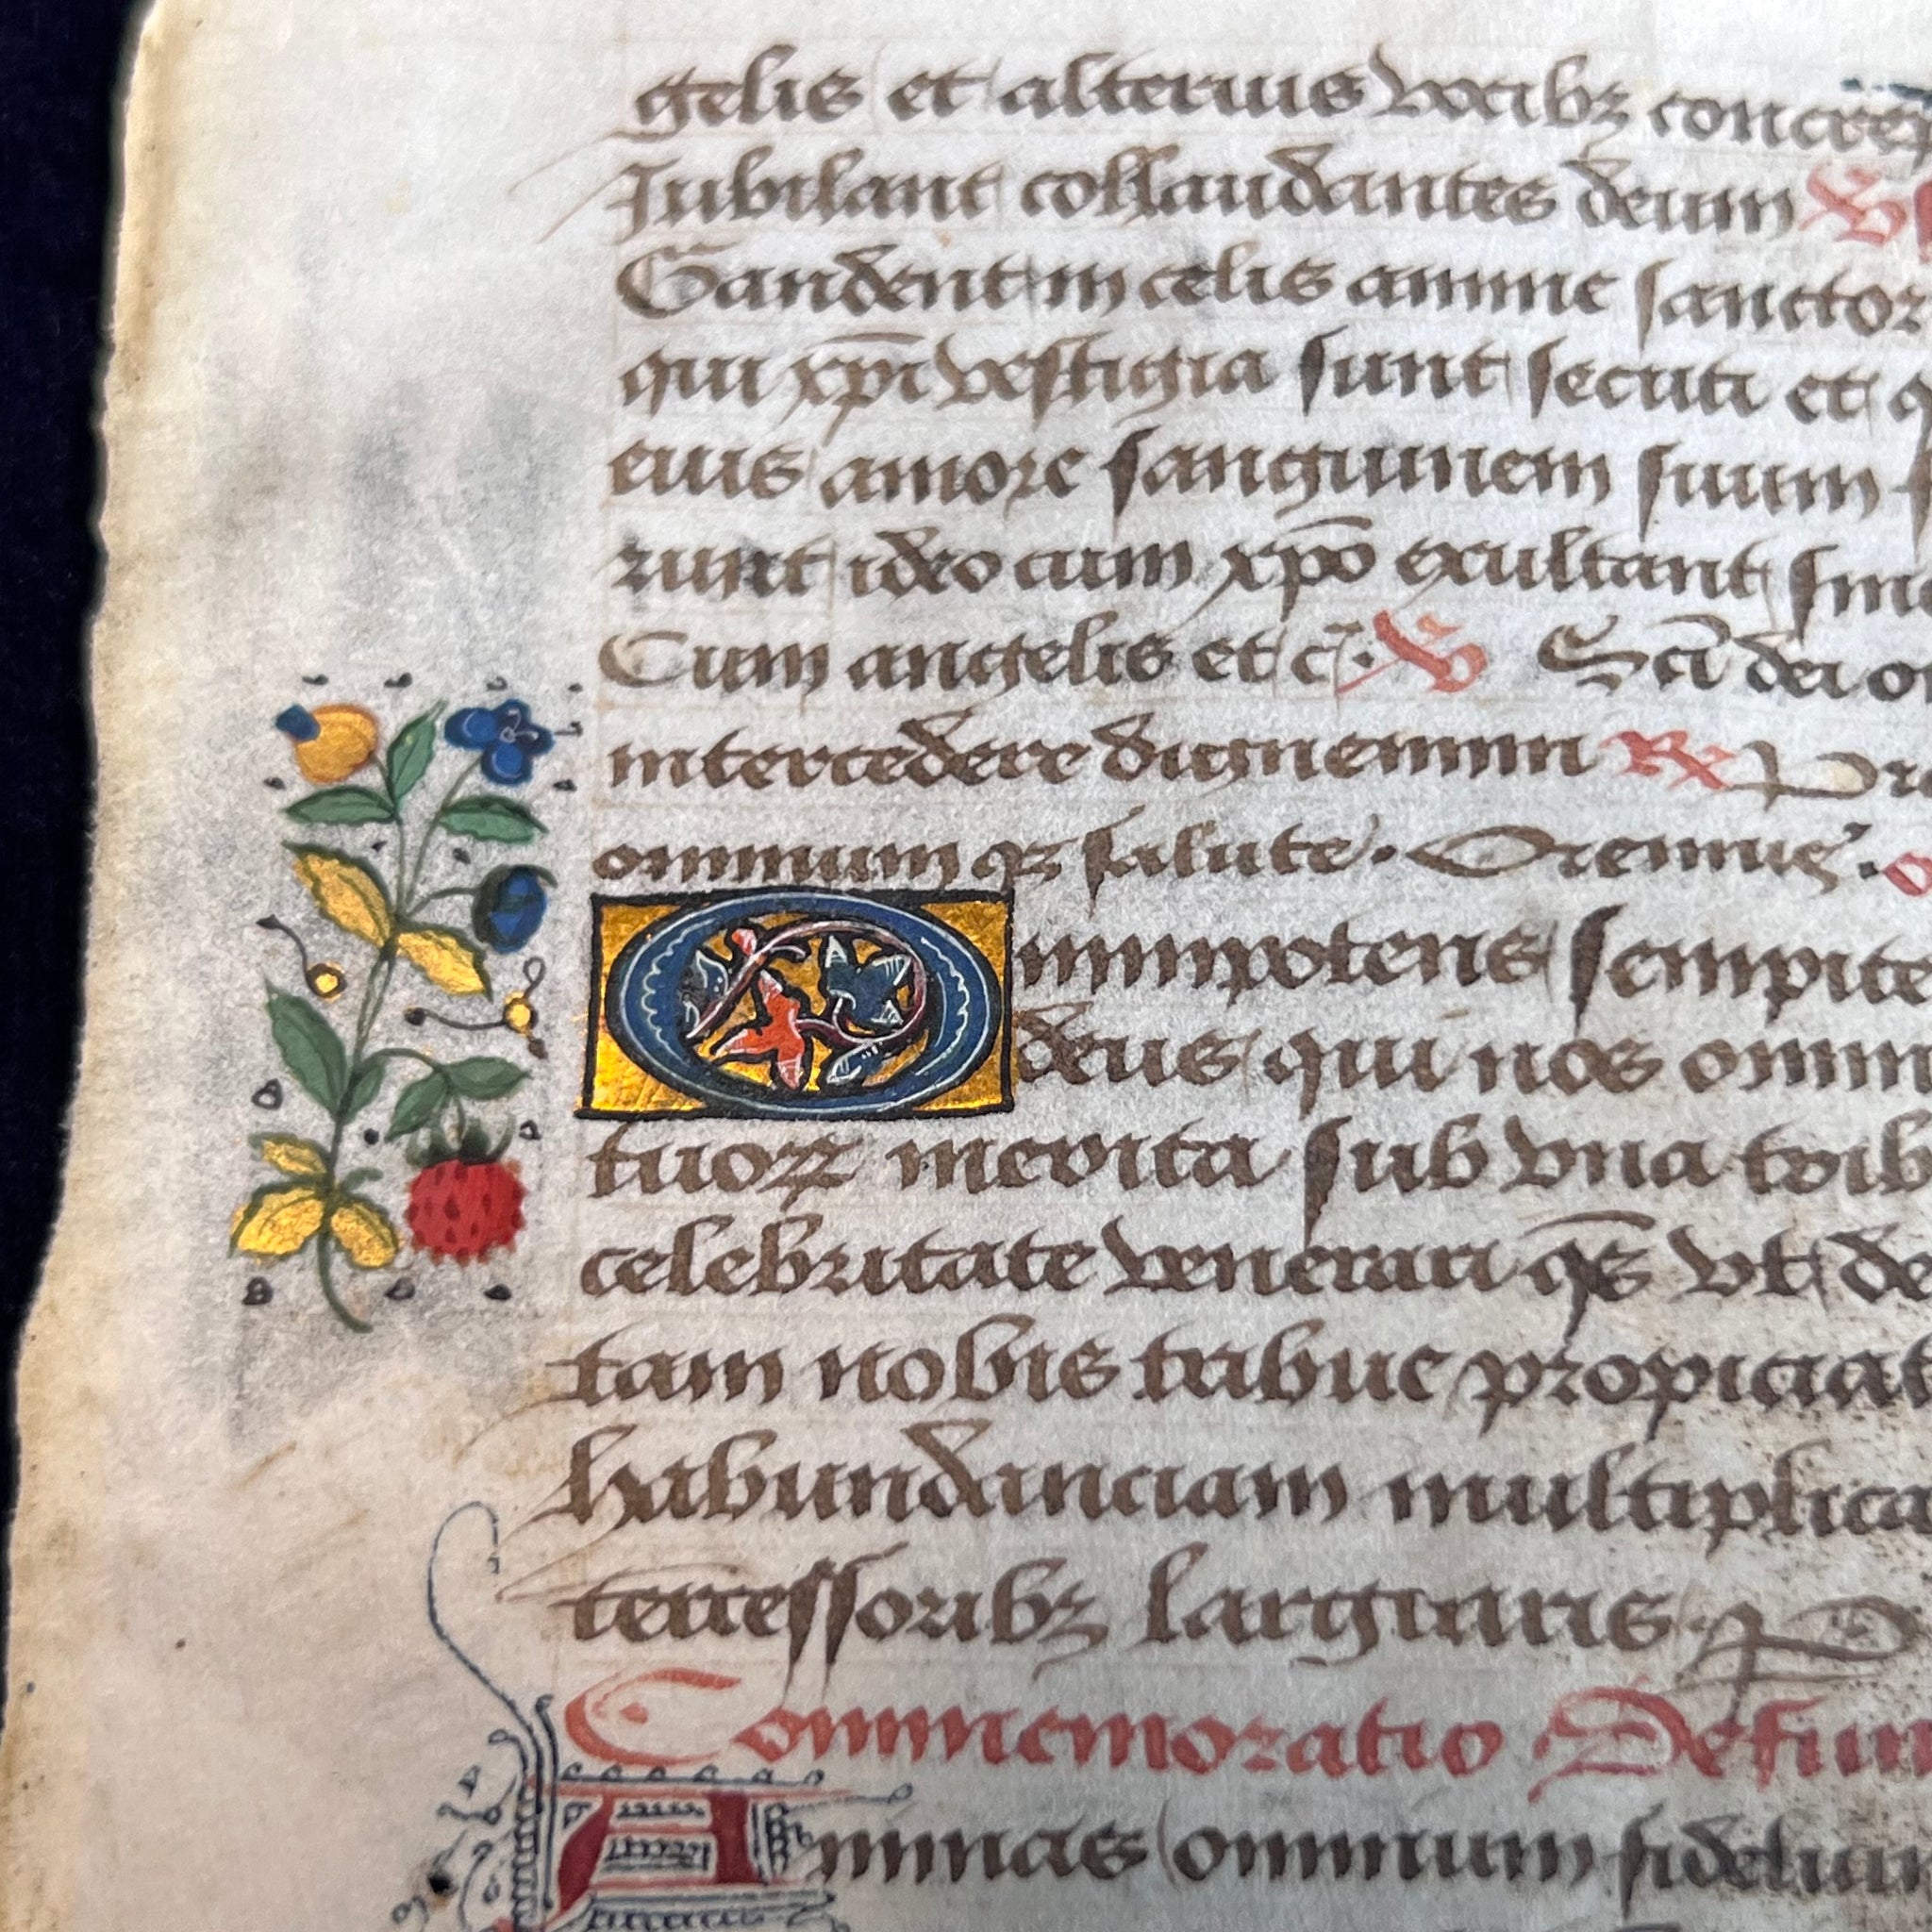 gelis et alterius vocibꝫ concre
Jubilant collaudantes deum ℣
Gaudent in celis anime sanctor
qui xp̄i vestigia sunt secuti et q
eius amore sanguinem suum f
runt ideo cum xp̄o exultant sin
Cum angelis et c̃. ℣ Sc̄i dei o
intercedere dignemini ℟ Pr
omnium qꝫ salute. Oremus. o
Omnipotens sempite
deus qui nos omni
tuoꝝ merita sub vna trib
celebritate venerari qs̄ vt de
tam nobis tribue propiciat
habundanciam multiplica
tercessoribꝫ largiaris. P
Commemoratio Defun
Animas omnium fideliu